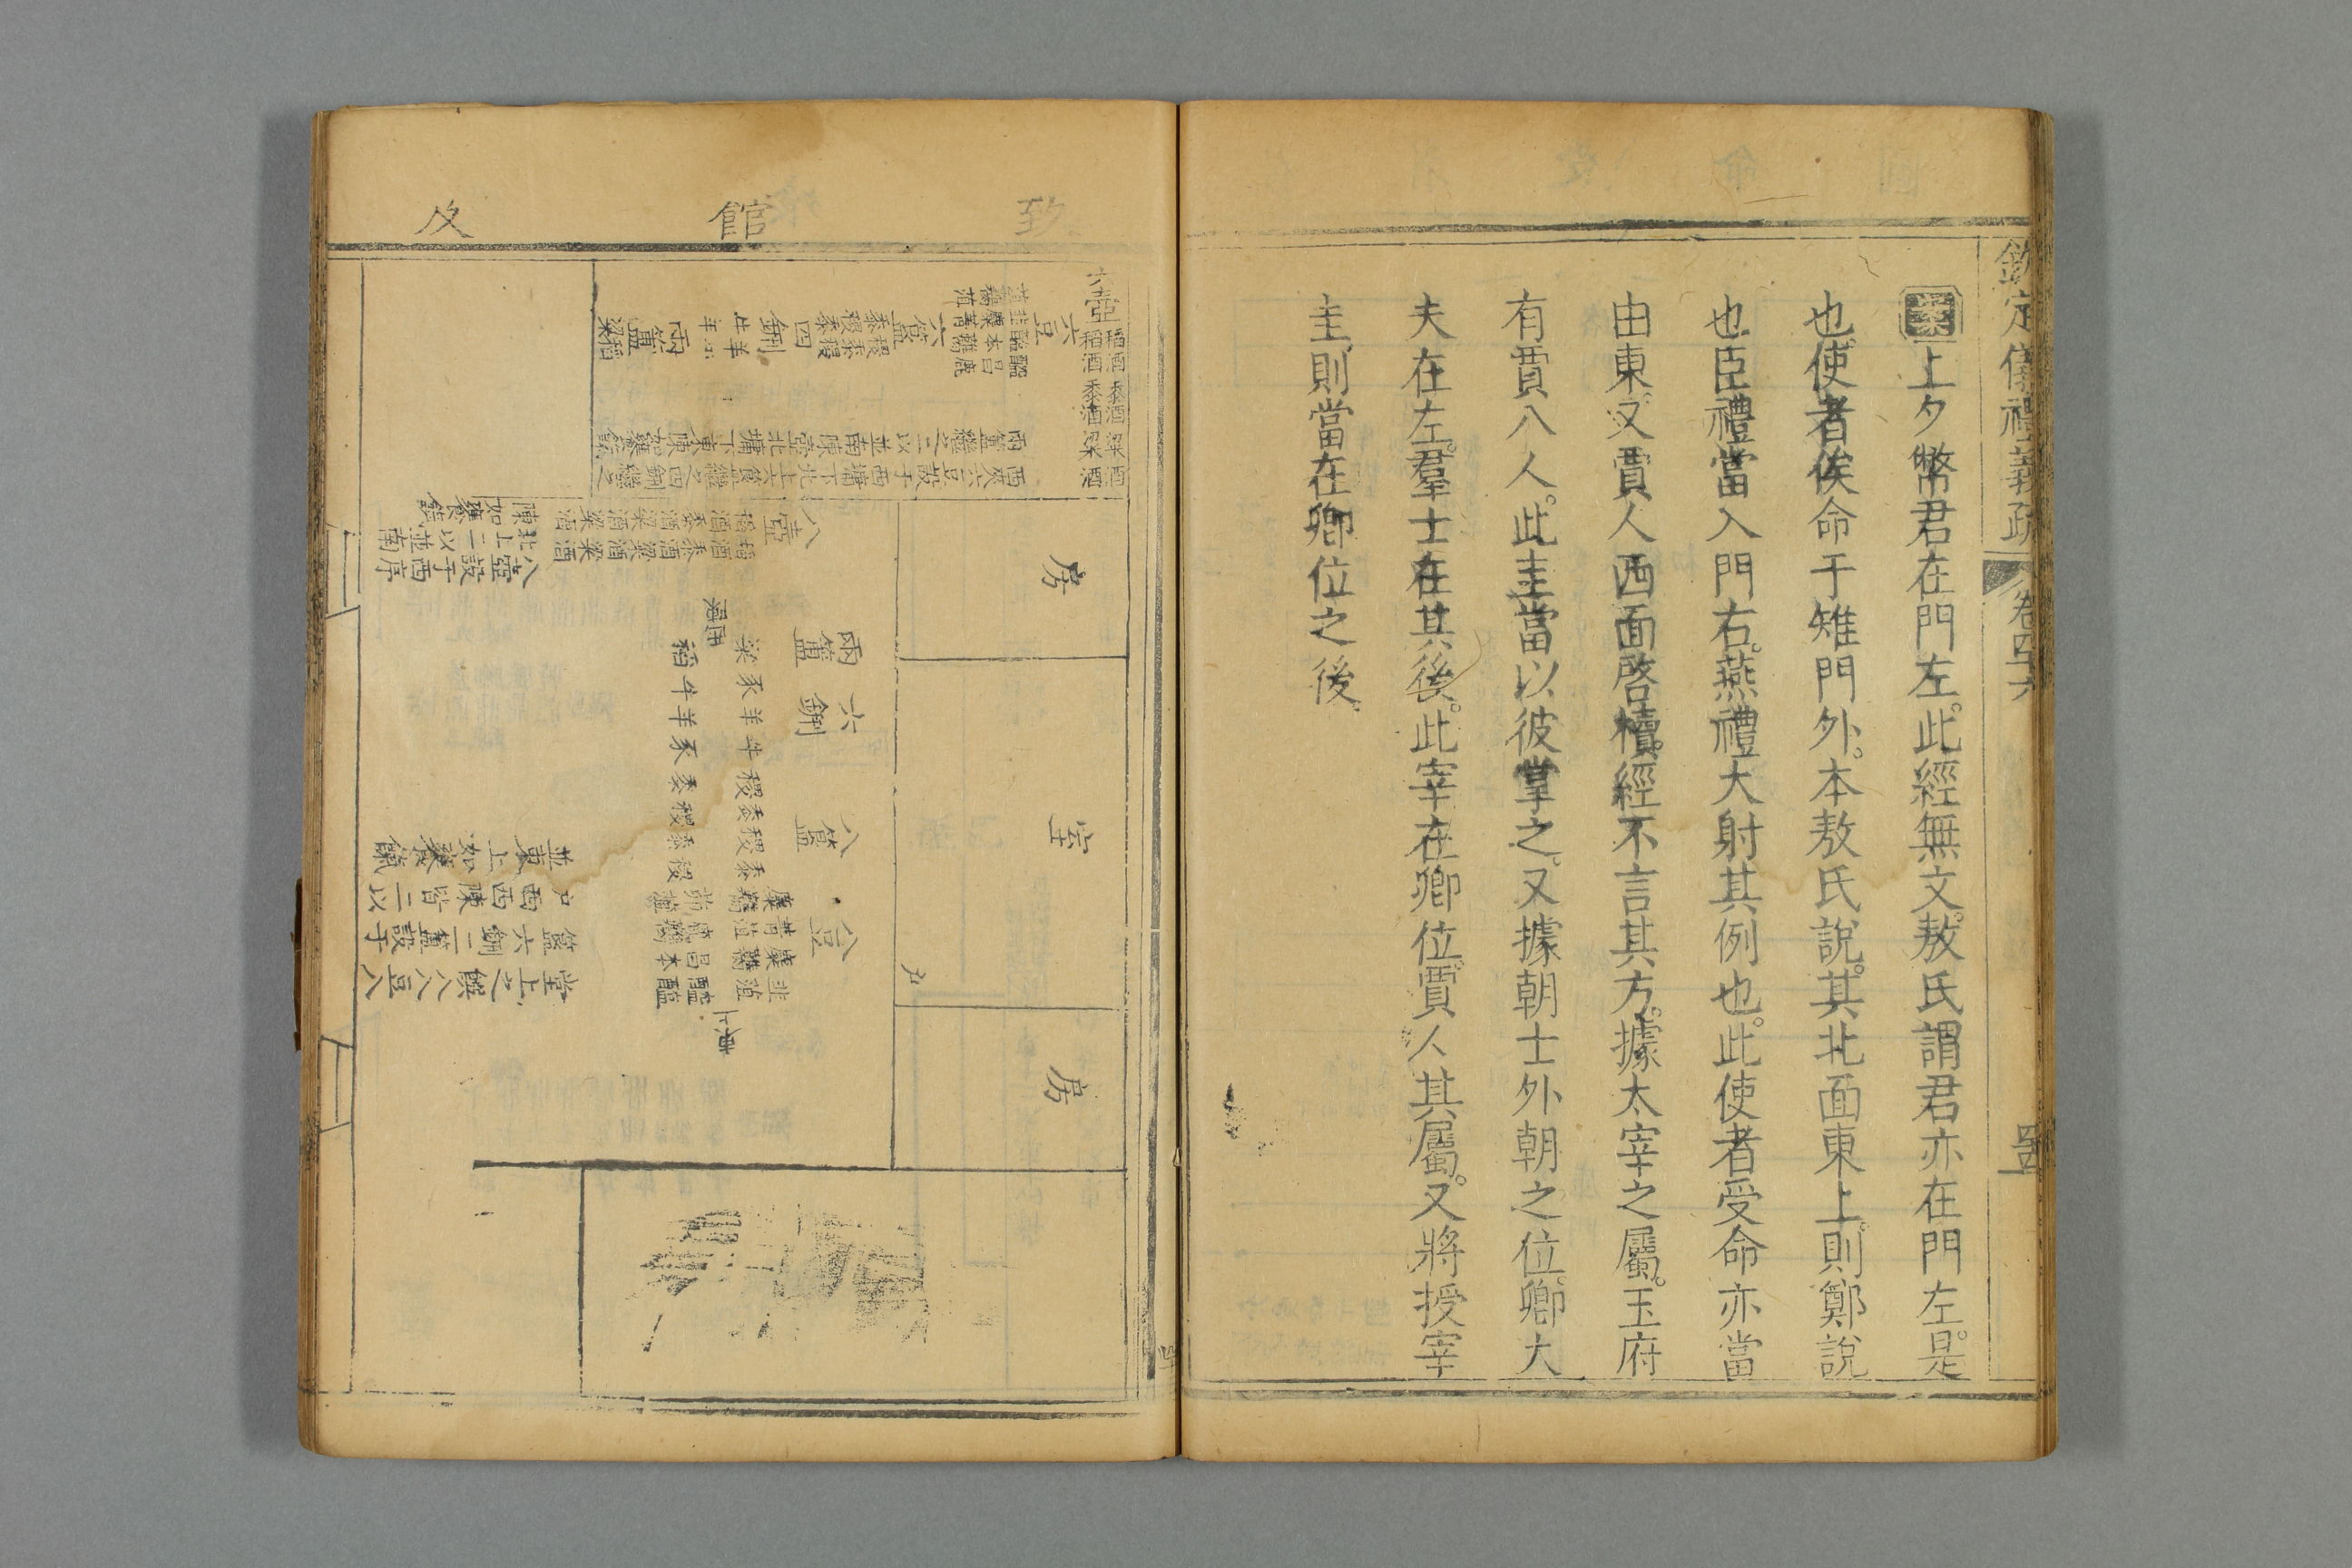 欽定儀禮義疏 卷四十六
案上夕幣君在門左。此經無文。敖氏謂君亦在門左。是
也。使者俟命于雉門外。本敖氏說。其北面東上。則鄭說
也。臣禮當入門右。燕禮大射其例也。此使者受命亦當
由東。又賈人西面啓櫝。經不言其方。據太宰之屬。玉府
有賈八人。此圭當以彼掌之。又據朝士外朝之位。卿大
夫在左。羣士在其後。此宰在卿位。賈人其屬。又將授宰
圭。則當在卿位之後。
致 館 及
房
室
房
戶
六壺
稻酒 稻酒
黍酒 黍酒
六豆
六簋
四鉶
兩簠
梁稻
西夾六豆設于西墉下北上六簋繼之四鉶繼之
兩簠繼之二以並南陳壺北墉下東陳如饔餼
八壺
稻酒黍酒梁酒
八壺設于西序
北上二以並南
陳如饔餼
兩簠
梁
稻
六鉶
豕羊牛
牛羊豕
八簋
稷黍稷黍
黍稷黍稷
八豆
韭菹
醓醢
昌本
堂上之饌八豆八
簋六鉶二簠設于
戶西西陳皆二以
並東上如饔餼